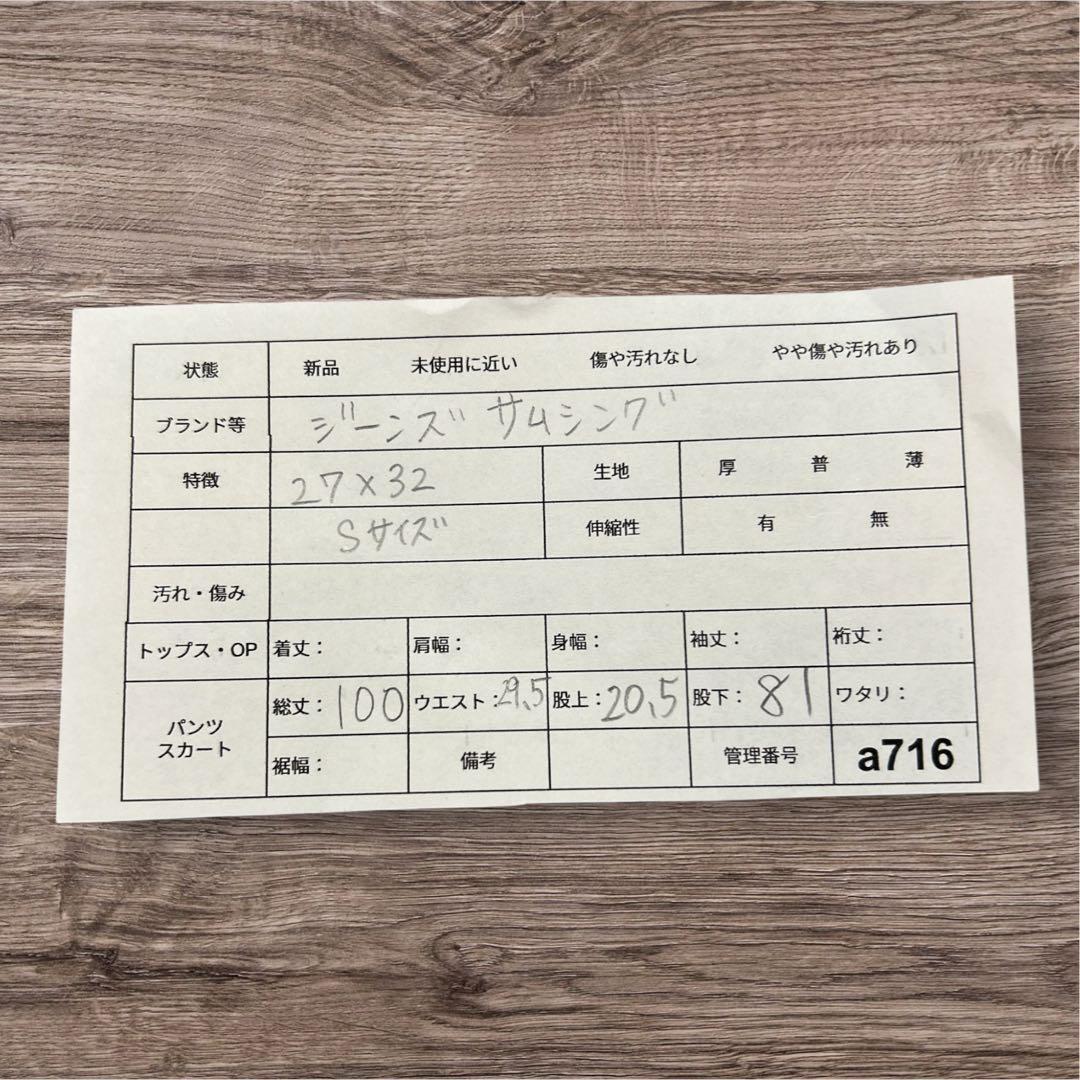 状態 新品 未使用に近い 傷や汚れなし やや傷や汚れあり
ブランド等 ジーンズ サムシング
特徴 27×32 生地 厚 普 薄
Sサイズ 伸縮性 有 無
汚れ・傷み
トップス・OP 着丈： 肩幅： 身幅： 袖丈： 裄丈：
パンツ スカート 総丈：100 ウエスト：29,5 股上：20,5 股下：81 ワタリ：
裾幅： 備考 管理番号 a716